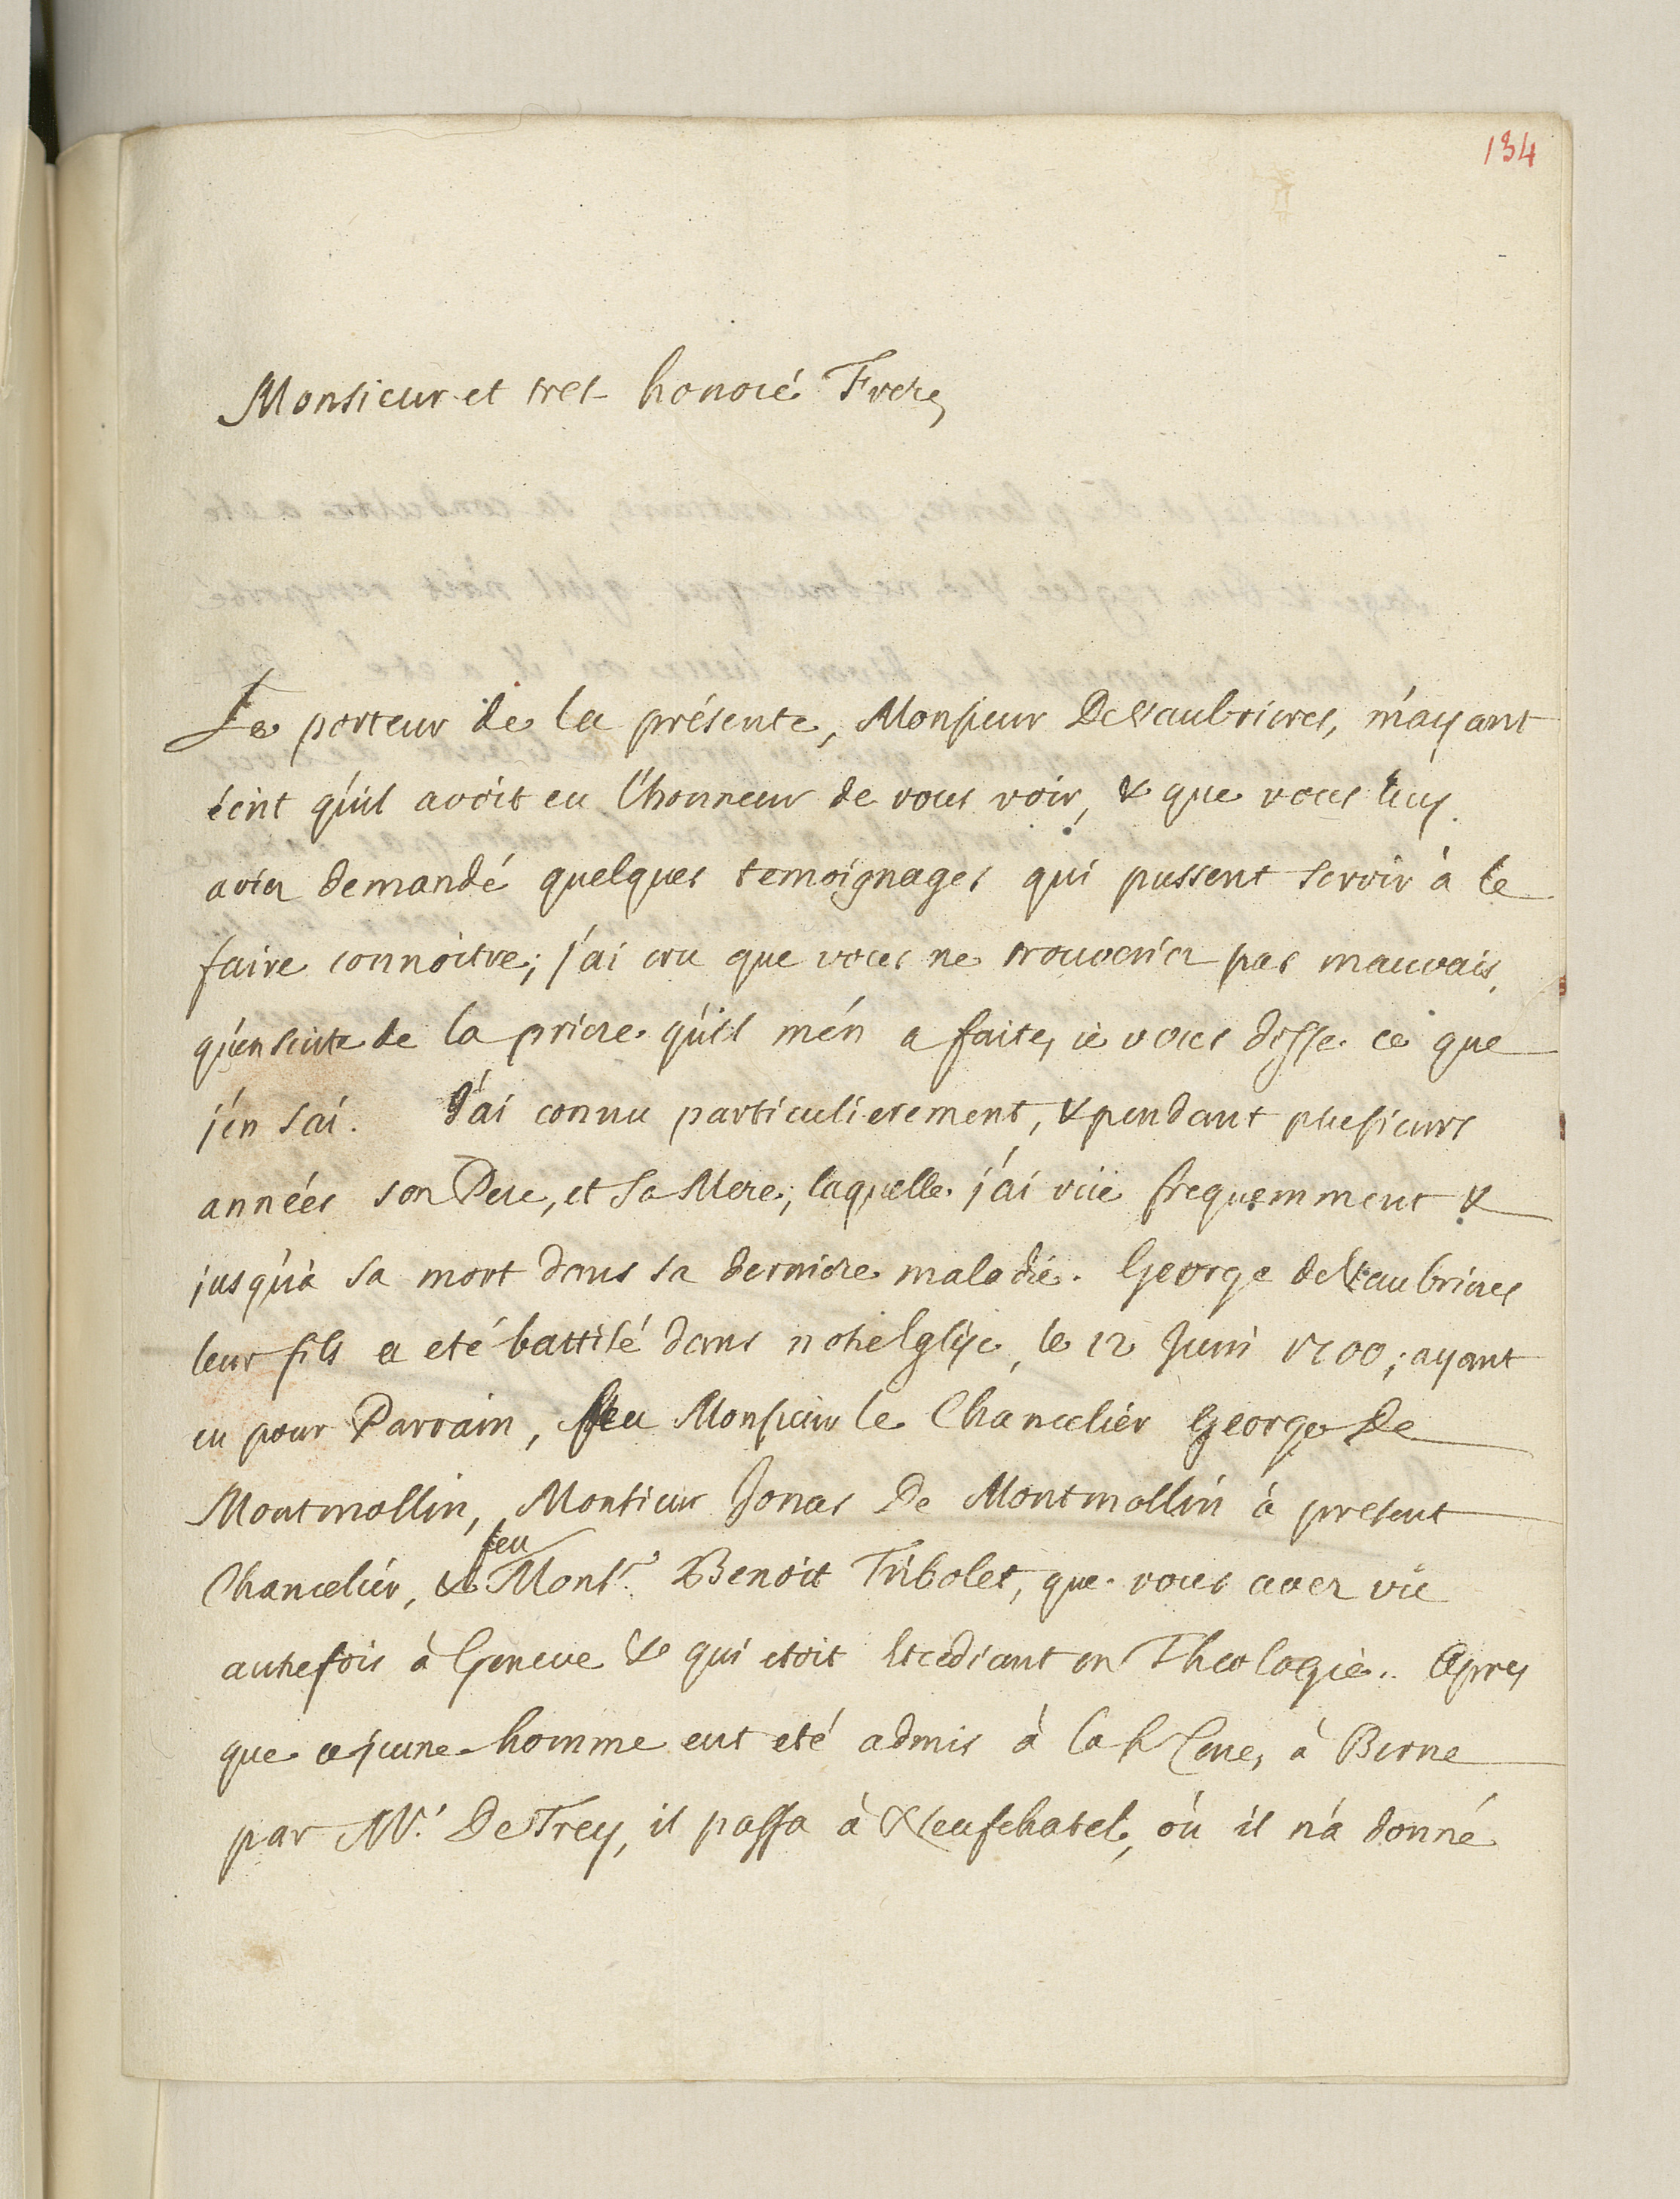 134
Monsieur et tres honoré Frere,
Le porteur de la présente, Monsieur DeVaubrieres, m'ayant
écrit qu'il avoit eu l'honneur de vous voir, & que vous luy
aviez demandé quelques temoignages qui pussent servir à le
faire connoitre; j'ai cru que vous ne trouveriez pas mauvais,
qu'ensuite de la priere qu'il m'en a faite, ie vous disse ce que
j'en sai. J'ai connu particulierement, & pendant plusieurs
années son Pere, et sa Mere; laquelle j'ai vüe frequemment &
jusqu'à sa mort dans sa derniere maladie. George deVaubrieres
leur fils a eté battisé dans notre Eglise, le 12 Juin 1700; ayant
eu pour Parrain, feu Monsieur le Chancelier George De
Montmollin, Monsieur Jonas De Montmollin à present
Chancelier, & feu Monsr. Benoit Tribolet, que vous avez vû
autrefois à Geneve & qui etoit Etudiant en Theologie. Apres
que ce jeune homme eut eté admis à la Ste Cene, à Berne
par Mr. DeTrey, il passa à Neufchatel, où il n'a donné